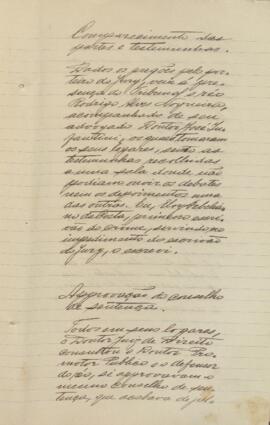 Comparecimento das
partes e testemunhas.
Dados os pregões pelo por-
teiro do Jury, veio á pre-
sença do Tribunal o réo
Rodrigo Nogueira,
acompanhado de seu
advogado Doutor José
os quaes tomaram
os seus logares, sendo as
testemunhas recolhidas
a uma sala donde não
podiam ouvir os debates
nem os depoimentos umas
das outras. Eu,
da Costa, primeiro escri-
vão do crime, servindo no
impedimento do escrivão
do Jury, o escrevi.
Approvação do conselho
de sentença.
Todos em seus logares,
o Doutor Juiz de Direito
consultou o Doutor Pro-
motor Publico e o defensor
do réo, si approvavam o
mesmo Conselho de sen-
tença, que acabava de